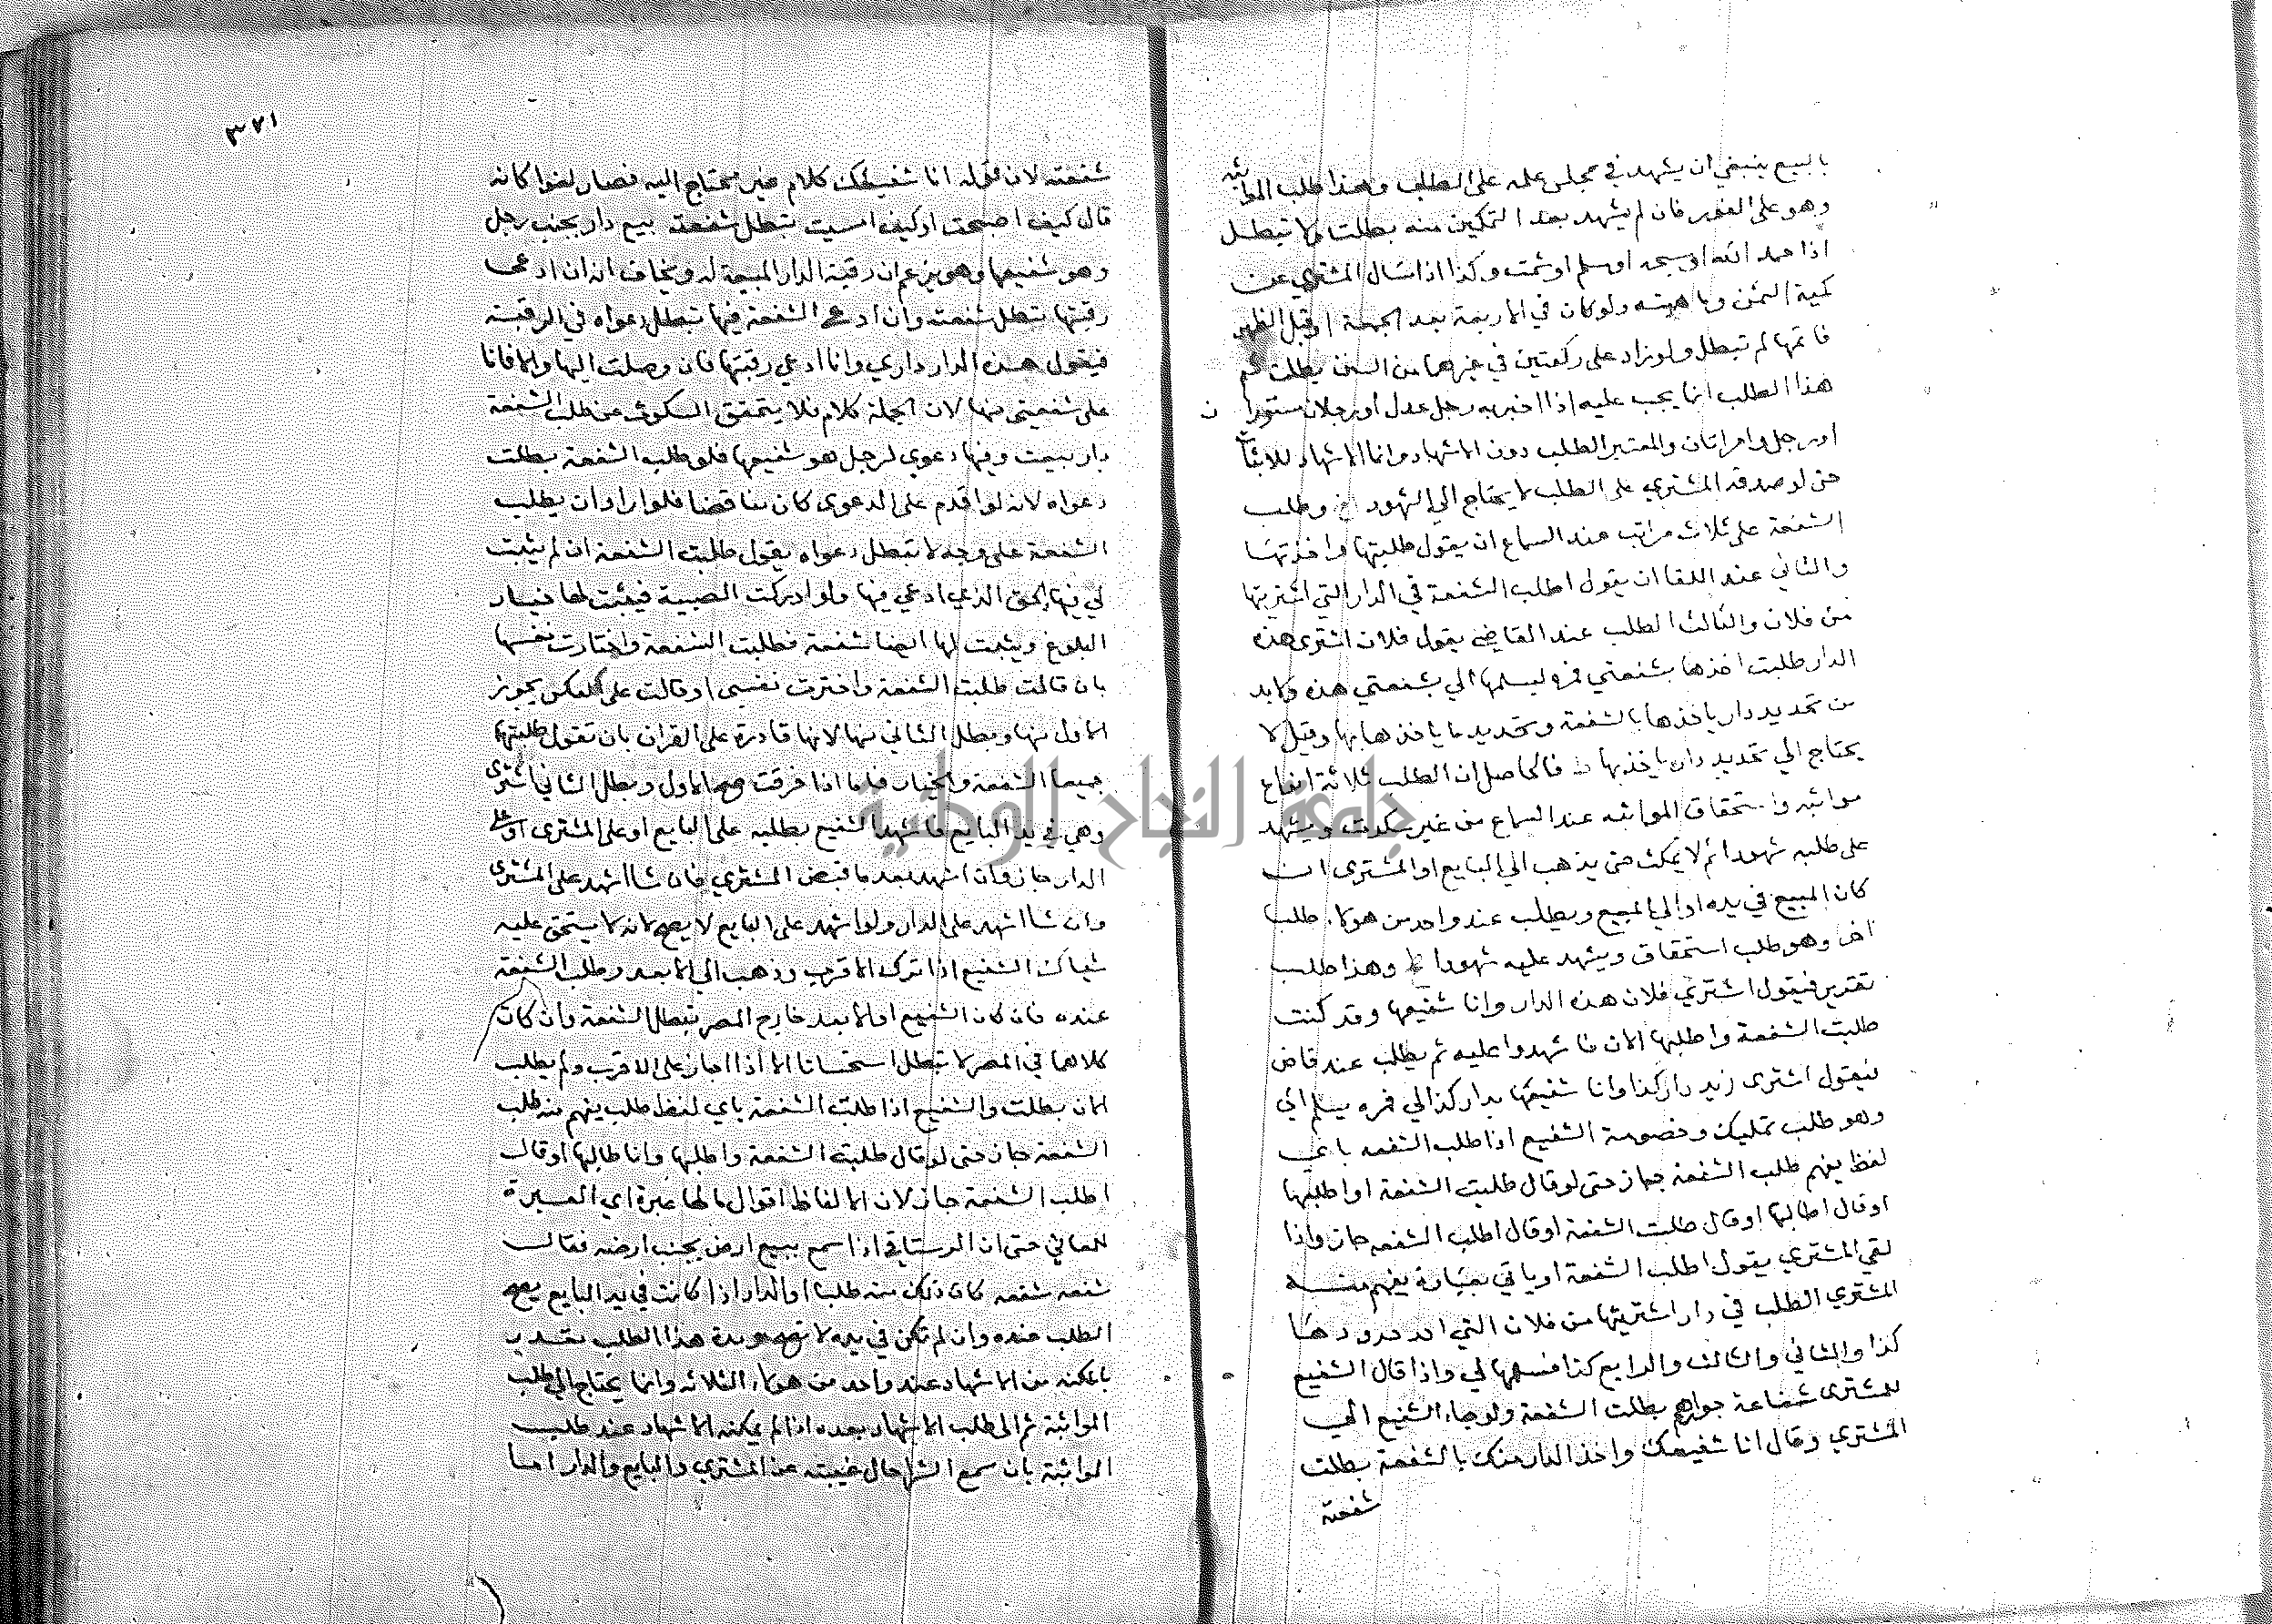 بالبيع ينبغي ان يشهد في مجلس علمه على الطلب وهذا طلب المواثبة
وهو على الفور فان لم يشهد بعد التمكين منه بطلت ولا تبطل
اذا حمد الله او سبحه او سلم او شمت وكذا اذا سال المشتري عن
كمية الثمن وماهيته ولو كان في الاربعة بعد الجمعة او قبل الظهر
فاتمها لم تبطل ولو زاد على ركعتين في غيرهما من السنن بطلت ثم
هذا الطلب انما يجب عليه اذا اخبر به رجل عدل او رجلان مستوران
او رجل وامراتان والمعتبر الطلب دون الاشهاد وانما الاشهاد للاثبات
حتى لو صدقه المشتري على الطلب لا يحتاج الي الشهود وطلب
الشفعة على ثلاث مراتب عند السماع ان يقول طلبتها واخذتها
والثاني عند اللقا ان يقول اطلب الشفعة في الدار التي اشتريتها
من فلان والثالث الطلب عند القاضي يقول فلان اشترى هذه
الدار طلبت اخذها بشفعتي فمره ليسلمها الي بشفعتي هذه ولا بد
من تحديد دار ياخذها بالشفعة وتحديد ما ياخذها بها وقيل لا
يحتاج الي تحديد دار ياخذ بها فالحاصل ان الطلب ثلاثة انواع
مواثبه واستحقاق المواثبه عند السماع من غير سكوت ويشهد
على طلبه شهودا ثم لا يمكث حتى يذهب الي البايع او المشترى ان
كان المبيع في يده او الي المبيع ويطلب عند واحد من هولاء طلب
اخر وهو طلب استحقاق ويشهد عليه شهودا وهذا طلب
تقرير فيقول اشترى فلان هذه الدار وانا شفيعها وقد كنت
طلبت الشفعة واطلبها الان فاشهدوا عليه ثم يطلب عند قاض
فيقول اشترى زيد دار كذا وانا شفيعها بدار كذا لي فمره يسلم الي
وهو طلب تمليك وخصومة الشفيع اذا طلب الشفعه باي
لفظ يفهم طلب الشفعة جاز حتى لو قال طلبت الشفعة او اطلبها
او قال اطالبها او قال طلبت الشفعة او قال اطلب الشفعه جاز واذا
لقي المشتري يقول اطلب الشفعة او ياتي بعبارة يفهم منه
المشتري الطلب في دار اشتريتها من فلان التي احد حدودها
كذا والثاني والثالث والرابع كذا فسلمها لي واذا قال الشفيع
للمشترى شفاعة خواهم بطلت الشفعة ولو جاء الشفيع الي
المشتري وقال انا شفيعك واخذ الدار منك بالشفعة بطلت
شفعته
٣٧١
شفعته لان قوله انا شفيعك كلام غير محتاج اليه فصار لغوا كانه
قال كيف اصبحت او كيف امسيت تبطل شفعته بيع دار بجنب رجل
وهو شفيعها وهو يزعم ان رقبة الدار المبيعة له ويخاف انه ان ادعى
رقبتها تبطل شفعته وان ادعى الشفعة فيها تبطل دعواه في الرقبة
فيقول هذه الدار داري وانا ادعي رقبتها فان وصلت اليها والا فانا
على شفعتي منها لان الجملة كلام فلا يتحقق السكوت عن طلب الشفعة
دار بيعت وفيها دعوي لرجل هو شفيعها فلو طلب الشفعة بطلت
دعواه لانه لو اقدم على الدعوى كان مناقضا فلو اراد ان يطلب
الشفعة على وجه لا تبطل دعواه يقول طلبت الشفعة ان لم يثبت
لي فيها الحق الذي ادعي فيها ولو ادركت الصبية فيثبت لها خيار
البلوغ ويثبت لها ايضا شفعة فطلبت الشفعة واختارت نفسها
بان قالت طلبت الشفعة واخترت نفسي او قالت على العكس يجوز
الاول منها ويبطل الثاني منها لانها قادرة على القران بان تقول طلبتهما
جميعا الشفعة والخيار فاما اذا فرقت صح الاول وبطل الثاني اشترى
وهي في يد البايع فاشهد الشفيع بطلبه على البايع او على المشترى او على
الدار جاز وان اشهد بعد ما قبض المشتري فان شا اشهد على المشترى
وان شا اشهد على الدار ولو اشهد على البايع لا يصح لانه لا يستحق عليه
شيا الشفيع اذا ترك الاقرب وذهب الي الابعد وطلب الشفعة
عنده فان كان الشفيع او الابعد خارج المصر تبطل الشفعة وان كان
كلاهما في المصر لا تبطل استحسانا الا اذا اجاز على الاقرب ولم يطلب
الان بطلت والشفيع اذا طلب الشفعة باي لفظ طلب يفهم منه طلب
الشفعة جاز حتى لو قال طلبت الشفعة واطلبها وانا طالبها او قال
اطلب الشفعة جاز لان الالفاظ اقوال مالها عبرة اي العبرة
للمعاني حتى ان الرستاقي اذا سمع ببيع ارض بجنب ارضه فقال
شفعه شفعه كان ذلك منه طلبا والدار اذا كانت في يد البايع يصح
الطلب عنده وان لم تكن في يده لا تصح ومدة هذا الطلب بقدر
ما يمكنه من الاشهاد عند واحد من هولاء الثلاثه وانما يحتاج الي طلب
المواثبة ثم الى طلب الاشهاد بعده اذا لم يمكنه الاشهاد عند طلب
المواثبة بان سمع الشرا حال غيبته عن المشتري والبايع والدار اما
جامعة النجاح الوطنية